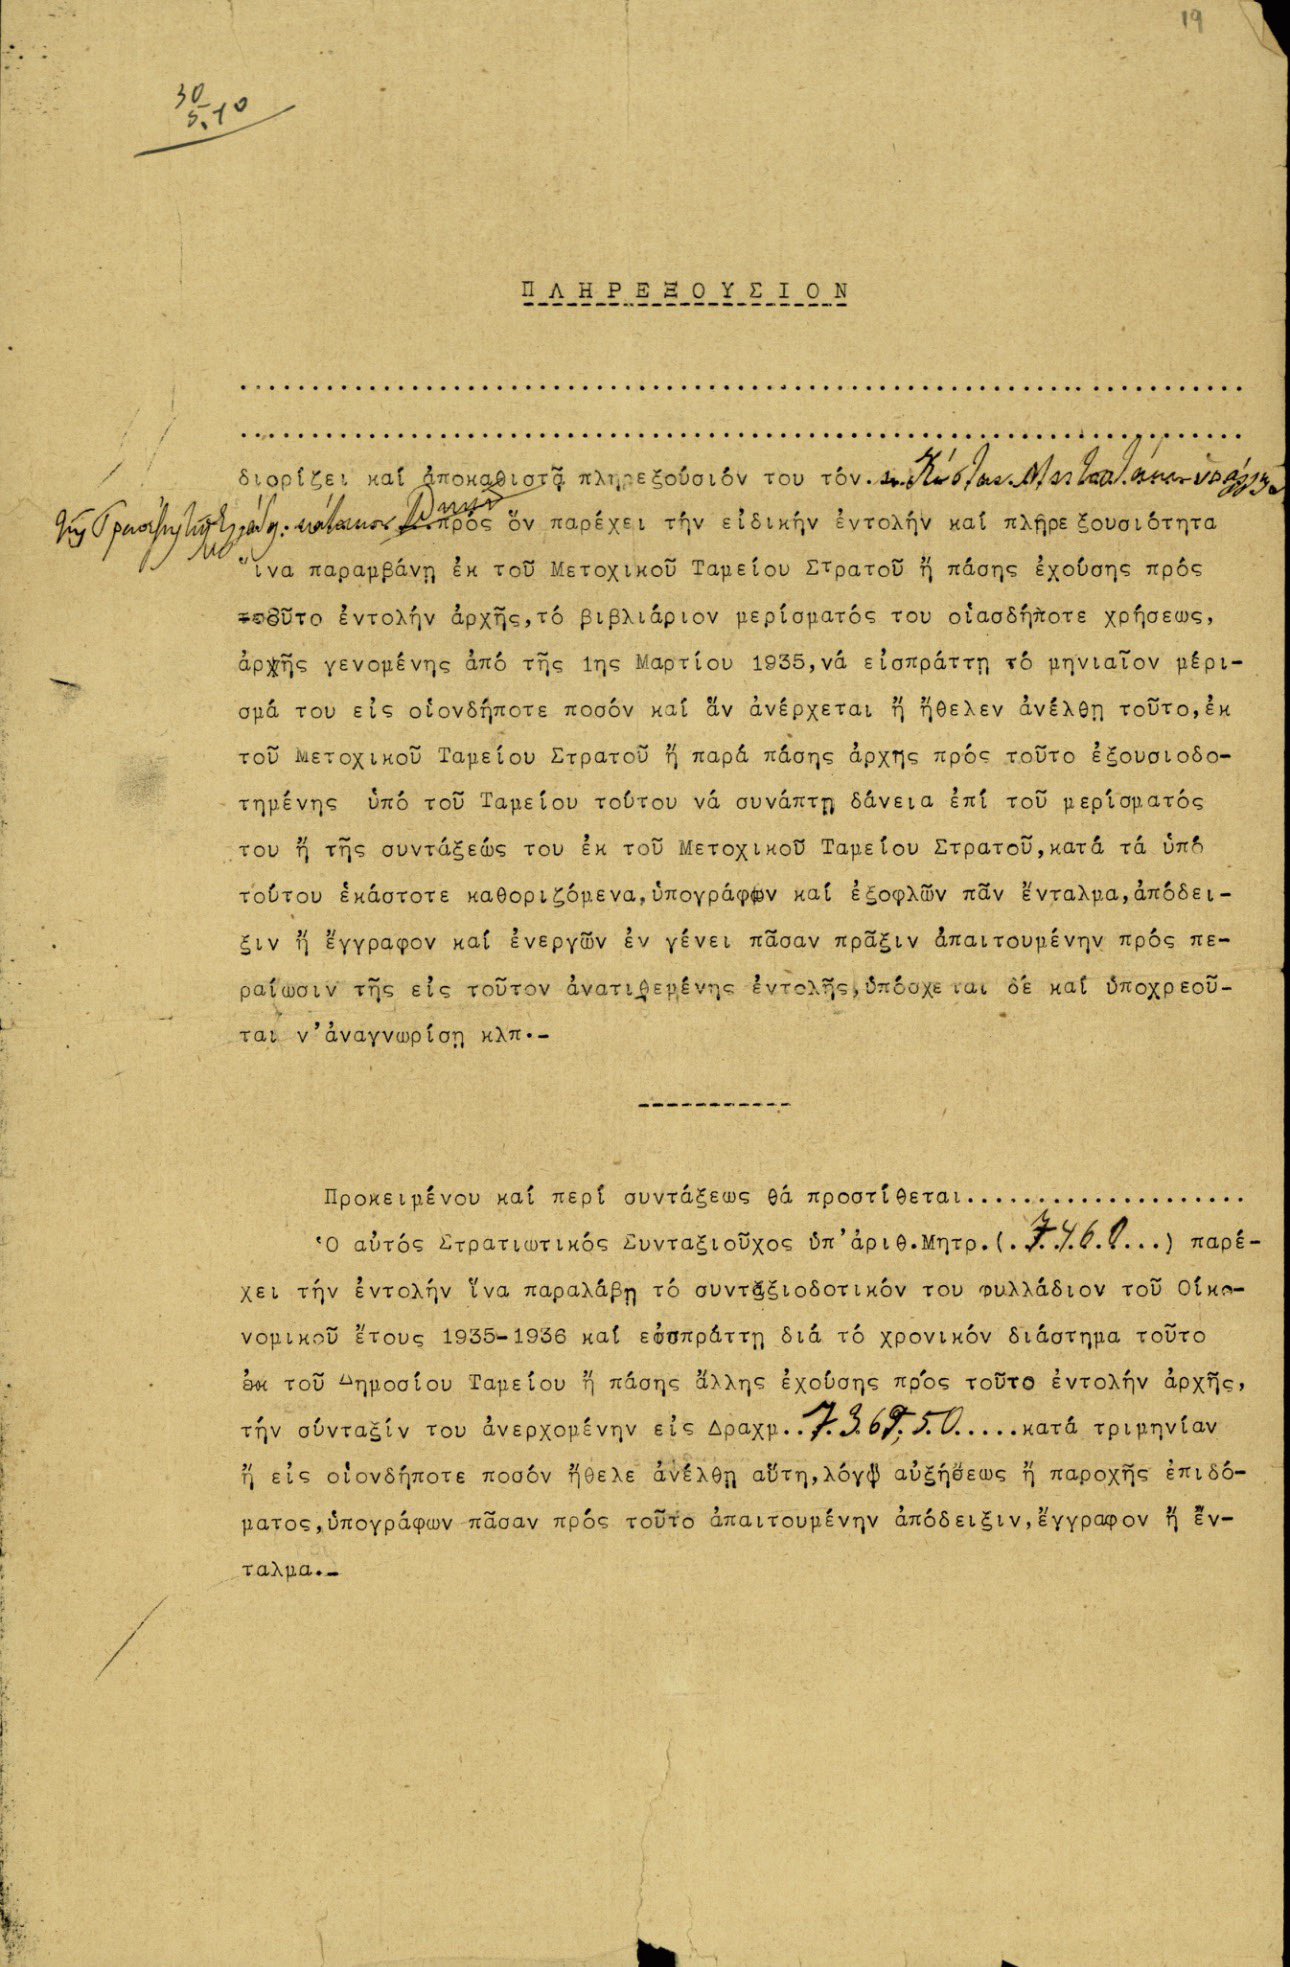 19
30
5.10
ΠΛΗΡΕΞΟΥΣΙΟΝ
......................................................................
......................................................................
διορίζει καί ἀποκαθιστᾷ πληρεξούσιόν του τόν. κ. Κώσταν
τῆς κάτοικον πρός ὅν παρέχει τήν εἰδικήν ἐντολήν καί πληρεξουσιότητα
ἵνα παραμβάνῃ ἐκ τοῦ Μετοχικοῦ Ταμείου Στρατοῦ ἤ πάσης ἐχούσης πρός
τοῦτο ἐντολήν ἀρχῆς,τό βιβλιάριον μερίσματός του οἱασδήποτε χρήσεως,
ἀρχῆς γενομένης ἀπό τῆς 1ης Μαρτίου 1935,νά εἰσπράττῃ τό μηνιαῖον μέρι-
σμά του εἰς οἱονδήποτε ποσόν καί ἄν ἀνέρχεται ἤ ἤθελεν ἀνέλθῃ τοῦτο,ἐκ
τοῦ Μετοχικοῦ Ταμείου Στρατοῦ ἤ παρά πάσης ἀρχῆς πρός τοῦτο ἐξουσιοδο-
τημένης ὑπό τοῦ Ταμείου τούτου νά συνάπτῃ δάνεια ἐπί τοῦ μερίσματός
του ἤ τῆς συντάξεώς του ἐκ τοῦ Μετοχικοῦ Ταμείου Στρατοῦ,κατά τά ὑπό
τούτου ἑκάστοτε καθοριζόμενα,ὑπογράφων καί ἐξοφλῶν πᾶν ἔνταλμα,ἀπόδει-
ξιν ἤ ἔγγραφον καί ἐνεργῶν ἐν γένει πᾶσαν πρᾶξιν ἀπαιτουμένην πρός πε-
ραίωσιν τῆς εἰς τοῦτον ἀνατιθεμένης ἐντολῆς,ὑπόσχεται δέ καί ὑποχρεοῦ-
ται ν'ἀναγνωρίσῃ κλπ.-
-----------
Προκειμένου καί περί συντάξεως θά προστίθεται....................
Ὁ αὐτός Στρατιωτικός Συνταξιοῦχος ὑπ'ἀριθ.Μητρ.(.7.4.6.0...) παρέ-
χει τήν ἐντολήν ἵνα παραλάβῃ τό συνταξιοδοτικόν του φυλλάδιον τοῦ Οἰκο-
νομικοῦ ἔτους 1935-1936 καί εἰσπράττῃ διά τό χρονικόν διάστημα τοῦτο
ἐκ τοῦ Δημοσίου Ταμείου ἤ πάσης ἄλλης ἐχούσης πρός τοῦτο ἐντολήν ἀρχῆς,
τήν σύνταξίν του ἀνερχομένην εἰς Δραχμ..7.369,50.....κατά τριμηνίαν
ἤ εἰς οἱονδήποτε ποσόν ἤθελε ἀνέλθῃ αὕτη,λόγῳ αὐξήσεως ἤ παροχῆς ἐπιδό-
ματος,ὑπογράφων πᾶσαν πρός τοῦτο ἀπαιτουμένην ἀπόδειξιν,ἔγγραφον ἤ ἔν-
ταλμα.-